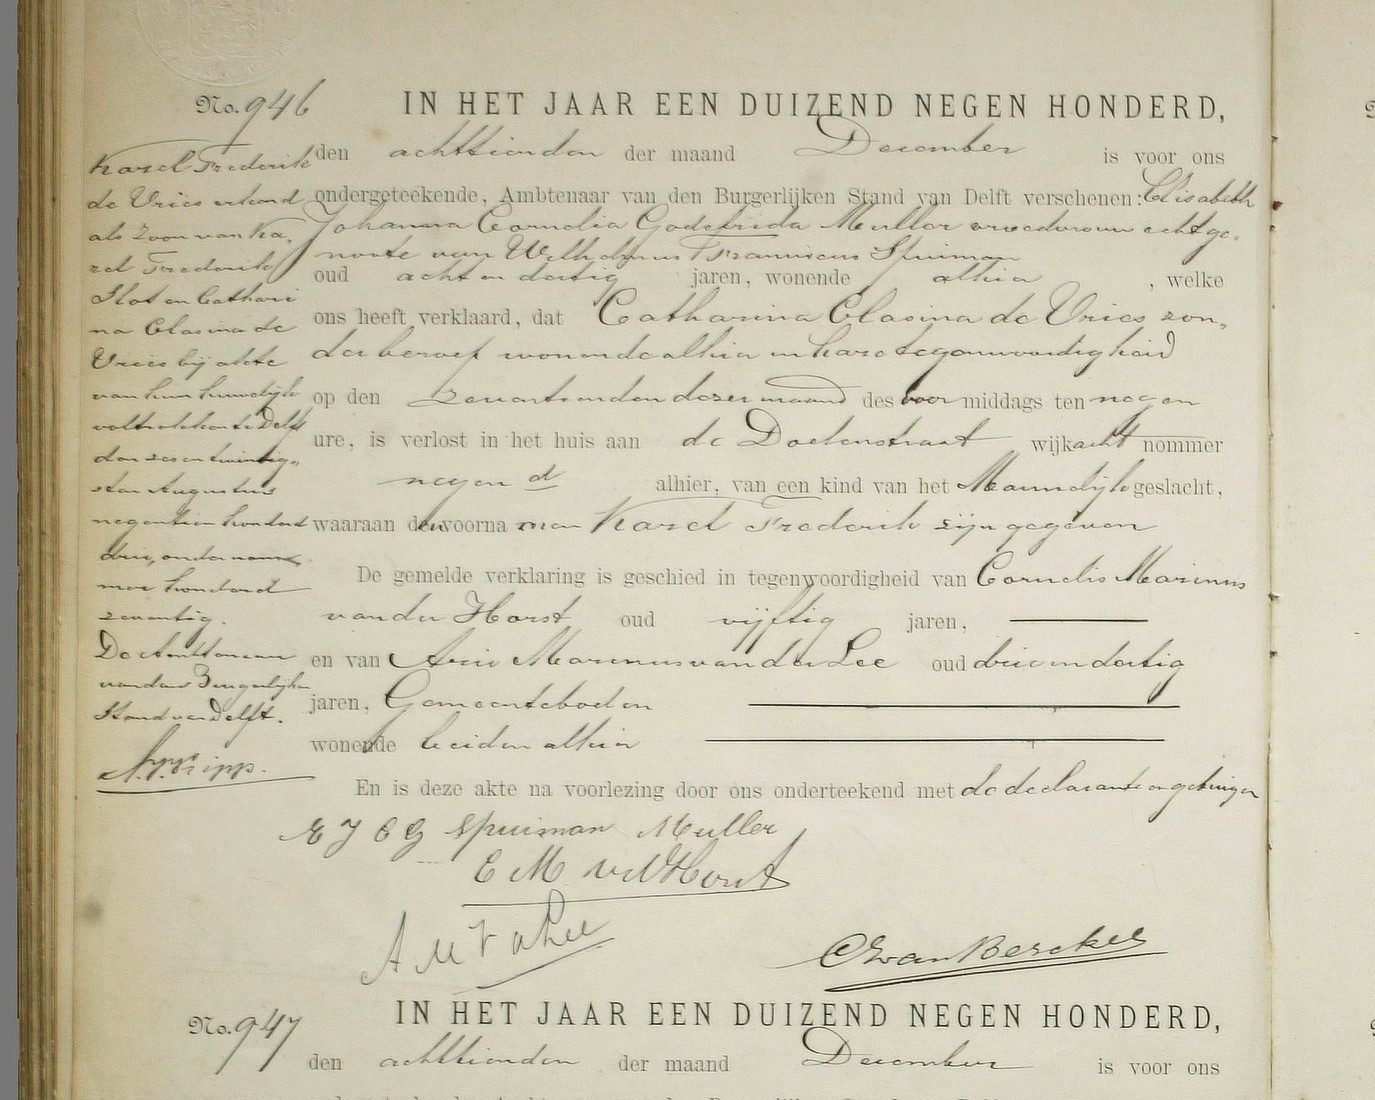 No. 946
IN HET JAAR EEN DUIZEND NEGEN HONDERD,
den achttienden der maand December is voor ons
ondergeteekende, Ambtenaar van den Burgerlijken Stand van Delft verschenen: Elisabeth
Johanna Cornelia Godefrida Muller vroedvrouw echtge-
noote van Wilhelmus Franciscus Spuiman
oud acht en dertig jaren, wonende alhier, welke
ons heeft verklaard, dat Catharina Clasina de Vries zon-
der beroep wonende alhier in hare tegenwoordigheid
op den zeventienden dezer maand des voor middags ten negen
ure, is verlost in het huis aan de Doelenstraat wijk acht nommer
negen d alhier, van een kind van het Mannelijk geslacht,
waaraan de voornamen Karel Frederik zijn gegeven
De gemelde verklaring is geschied in tegenwoordigheid van Cornelis Marinus
van der Horst oud vijftig jaren,
en van Arie Marinus van der Lee oud drie en dertig
jaren, Gemeenteboden
wonende beiden alhier
En is deze akte na voorlezing door ons onderteekend met de declarante en getuigen
E J C G Spuiman Muller
C M vd Horst
A M v d Lee
van Berckel
Karel Frederik
de Vries erkend
als zoon van Ka-
rel Frederik
Slot en Cathari
na Clasina de
Vries bij akte
van hun huwelijk
voltrokken te Delft
den zes en twintig-
sten Augustus
negentien honderd
drie, onder num-
mer honderd
zeventig.
De Ambtenaar
van den Burgerlijken
Stand van Delft.
No. 947
IN HET JAAR EEN DUIZEND NEGEN HONDERD,
den achttienden der maand December is voor ons